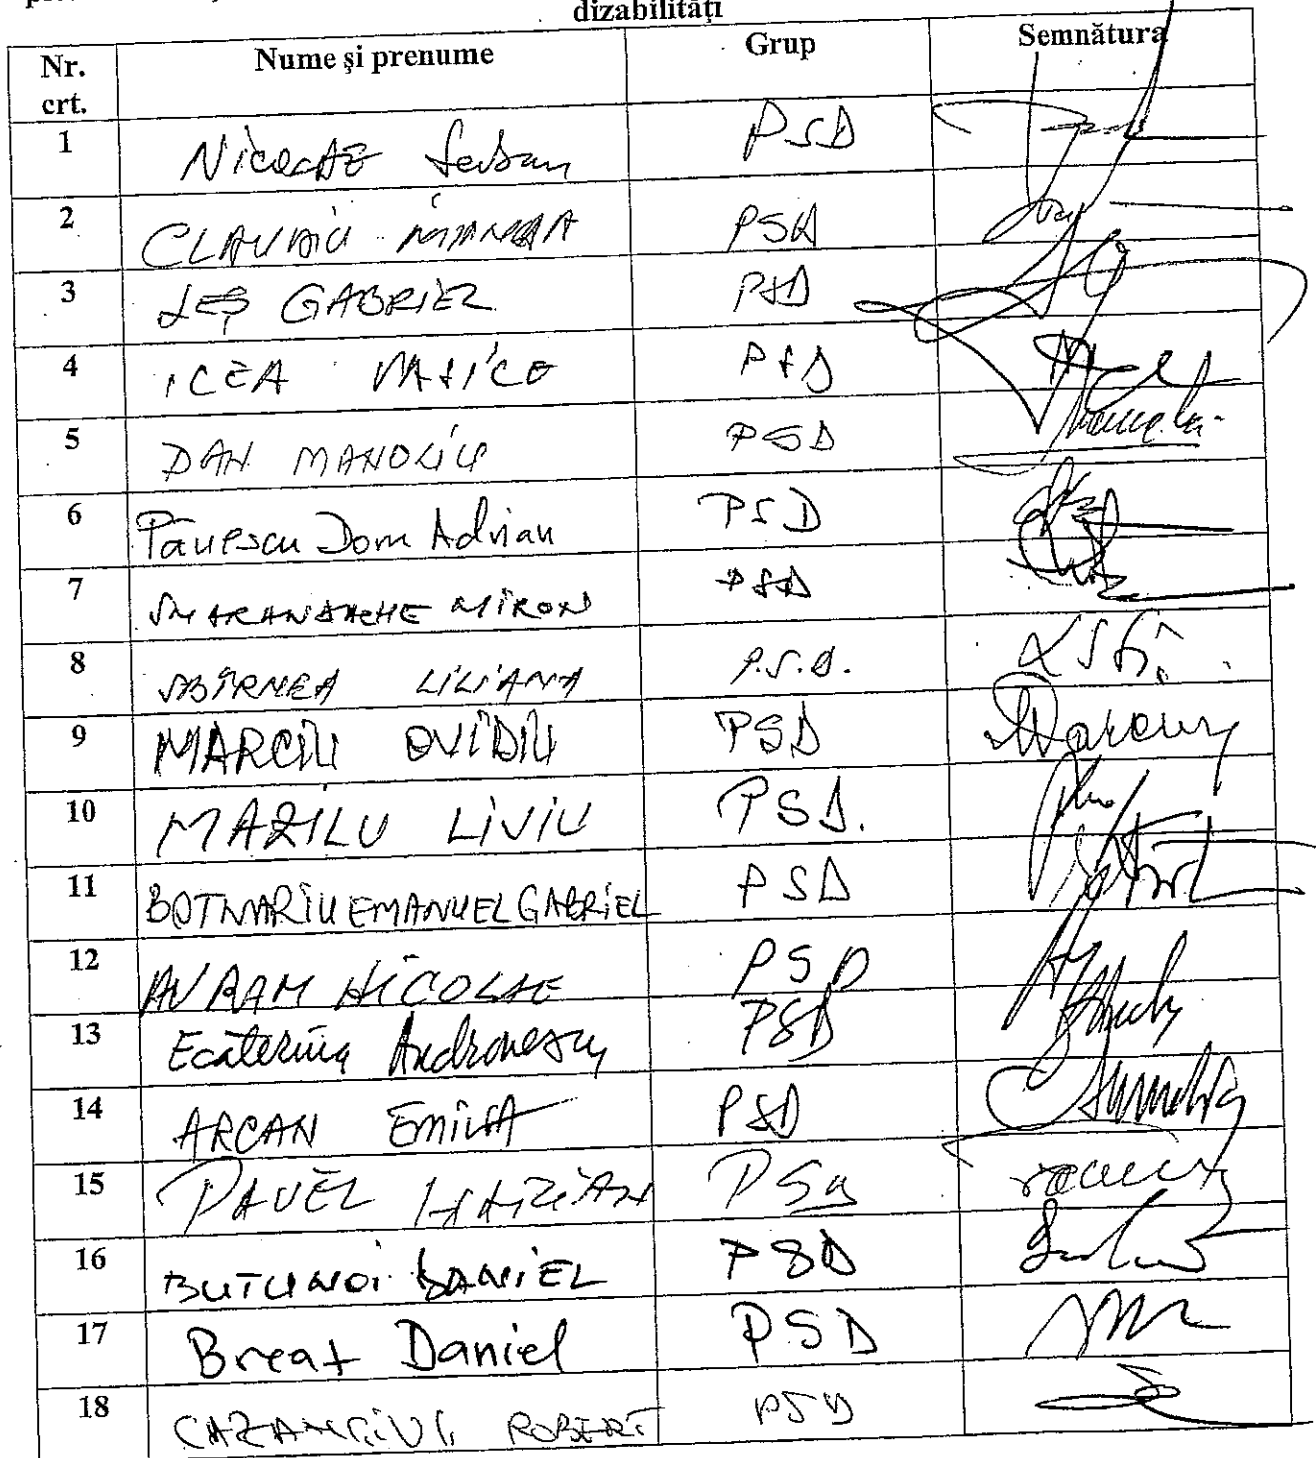 dizabilităţi
Nr. crt. Nume şi prenume Grup Semnătura
1 Nicolae Serban PSD
2 CLAUDIU MANDA PSD
3 LEŞ GABRIEL PSD
4 ILEA VASILE PSD
5 DAN MANOLIU PSD
6 Pănescu Doru Adrian PSD
7 SMARANDACHE MIRON PSD
8 SBÎRNEA LILIANA P.S.D.
9 MARCIU OVIDIU PSD
10 MAZILU LIVIU PSD.
11 BOTNARIU EMANUEL GABRIEL PSD
12 AVRAM NICOLAE PSD
13 Ecaterina Andronescu PSD
14 ARCAN EMILIA PSD
15 PAVEL MARIAN PSD
16 BUTUNOI DANIEL PSD
17 Breaz Daniel PSD
18 CAZANCIUC ROBERT PSD